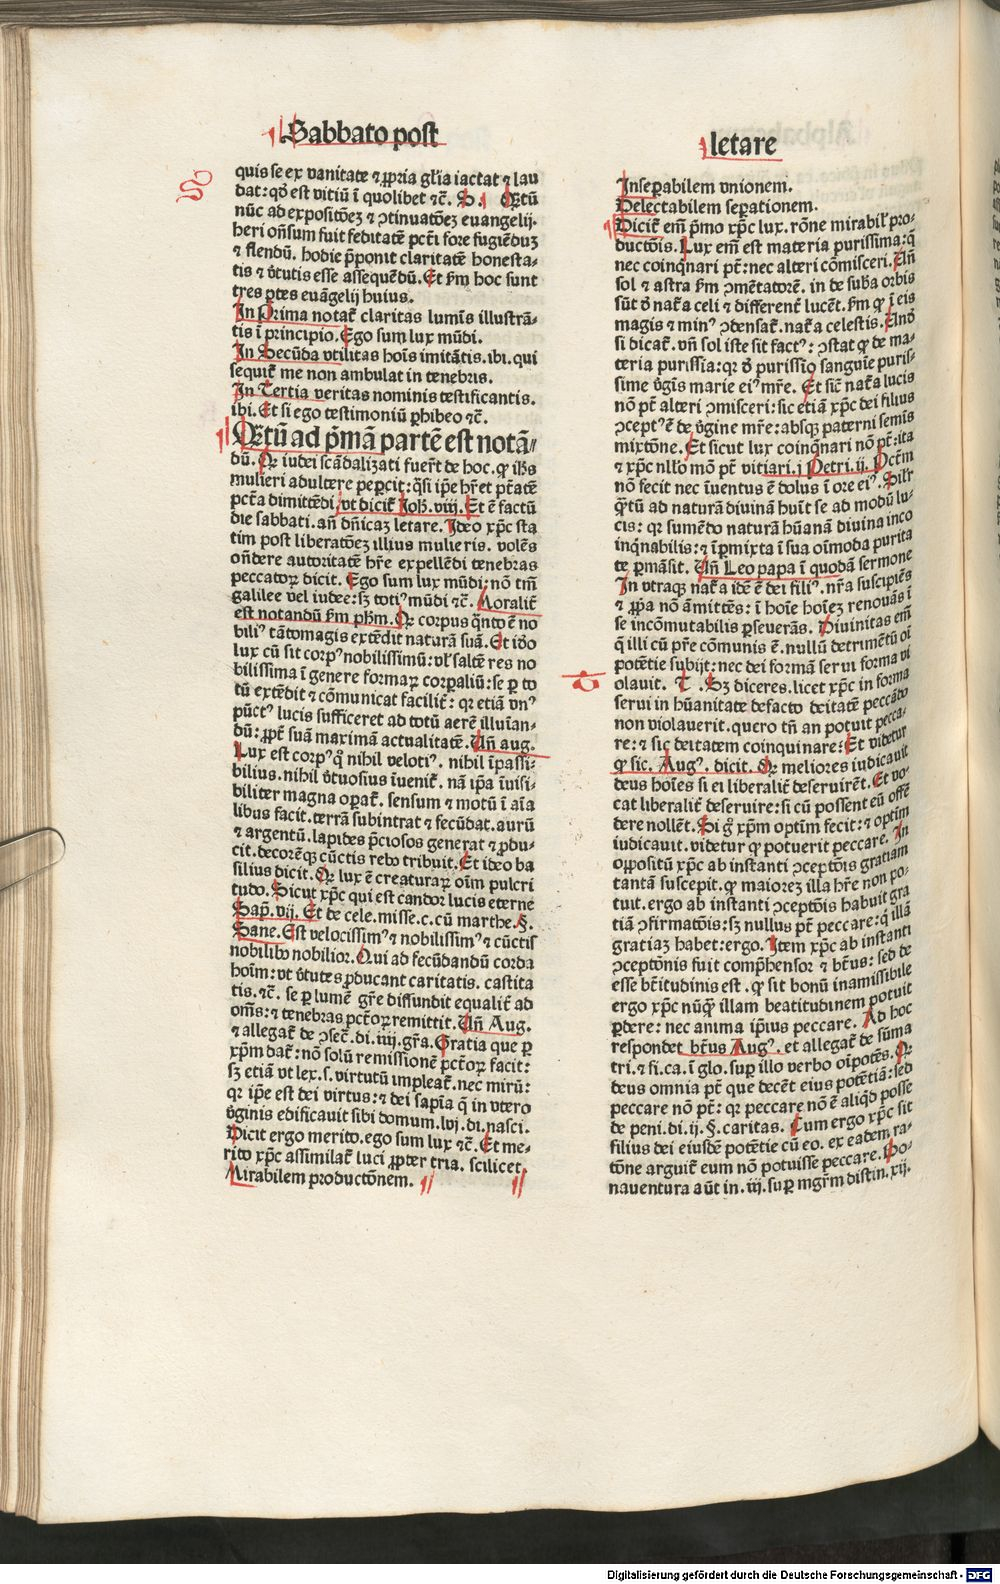 Sabbato post
letare
quis se ex vanitate ⁊ ꝓpria gl'ia iactat ⁊ lau
dat: qđ est vitiū ī quolibet ⁊c̄. S. Qꝫtū
nūc ab expositōeꝫ ⁊ ↄtinuatōeꝫ euangelij.
heri oñsum fuit feditatē pctī fore fugiēduꝫ
⁊ flendū. hodie p̄ponit claritatē honesta-
tis ⁊ v̓tutis esse assequēdū. Et ẜm hoc sunt
tres ꝑtes euāgelij huius.
In Prima notat̄ claritas lumīs illustrā-
tis ī principio. Ego sum lux mūdi.
In Secūda vtilitas hoīs imitātis. ibi. qui
sequit̄ me non ambulat in tenebris.
In Tertia veritas nominis testificantis.
ibi. Et si ego testimoniū ꝑhibeo ⁊c̄.
Qꝫtū ad p̄mā partē est notā-
dū. Qꝛ iudei scādalizati fuer̄t de hoc. ꝙ iħs
mulieri adultere peꝑcit: q̄si ip̄e hr̄et ptātē
pctā dimittēdi. vt dicit̄ Joħ. viij. Et ē factū
die sabbati. añ dñicaꝫ letare. Ideo xp̄c sta
tim post liberatōeꝫ illius mulieris. volēs
oñdere autoritatē hr̄e expellēdi tenebras
peccatoꝝ dicit. Ego sum lux mūdi: nō tm̄
galilee vel iudee: sꝫ totiꝰ mūdi ⁊c̄. Moralit̄
est notandū ẜm pħm. Qꝛ corpus q̄nto ē no
biliꝰ tātomagis extēdit naturā suā. Et iđo
lux cū sit corpꝰ nobilissimū: vl' saltē res no
bilissima ī genere formaꝝ corꝑaliū: se ꝑ to
tū extēdit ⁊ cōmunicat facilit̄: qꝛ etiā vnꝰ
pūctꝰ lucis sufficeret ad totū aerē illuīan-
dū: ꝓpt̄ suā maximā actualitatē. Uñ aug.
Lux est corpꝰ q̊ nihil velotiꝰ. nihil īpassi-
bilius. nihil v̓tuosius īuenit̄. nā ip̄a īuisi-
biliter magna oꝑat̄. sensum ⁊ motū ī aīa
libus facit. terrā subintrat ⁊ fecūdat. aurū
⁊ argentū. lapides p̄ciosos generat ⁊ ꝓdu-
cit. decorēqꝫ cūctis rebꝰ tribuit. Et ideo ba
silius dicit. Qꝛ lux ē creaturaꝝ oīm pulcri
tudo. Sicut xp̄c qui est candor lucis eterne
Sap̄. vij. Et de cele. misse. c. cū marthe. §.
Sane. Est velocissimꝰ ⁊ nobilissimꝰ ⁊ cūctis
nobilibꝰ nobilior. Qui ad fecūdandū corda
hoīm: vt v̓tutes ꝓducant caritatis. castita
tis. ⁊c̄. se ꝑ lumē gr̄e diffundit equalit̄ ad
om̄s: ⁊ tenebras pctōꝝ remittit. Uñ Aug.
⁊ allegat̄ de ↄsect̄. di. iiij. gr̄a. Gratia que ꝑ
xp̄m dat̄: nō solū remissionē pctōꝝ facit:
sꝫ etiā vt lex. s. virtutū impleat̄. nec mirū:
qꝛ ip̄e est dei virtus: ⁊ dei sapīa q̄ in vtero
v̓ginis edificauit sibi domum. lvj. di. nasci.
Dicit ergo merito. ego sum lux ⁊c̄. Et me-
rito xp̄c assimilat̄ luci ꝓpter tria. scilicet
Mirabilem productōnem.
Inseꝑabilem vnionem.
Delectabilem seꝑationem.
Dicit̄ em̄ p̄mo xp̄c lux. rōne mirabil' pro-
ductōis. Lux em̄ est materia purissima: q̄
nec coinq̄nari pt̄: nec alteri cōmisceri. Uñ
sol ⁊ astra ẜm ↄmētatorē. in de suba orbis
sūt đ nat̄a celi ⁊ different̄ lucēt. ẜm ꝙ ī eis
magis ⁊ minꝰ ↄdensat̄. nat̄a celestis. Uñđ
si dicat̄. vñ sol iste sit factꝰ: ↄstat ꝙ de ma-
teria purissia: qꝛ đ purissīo sanguīe puris-
sime v̓gīs marie eiꝰ mr̄e. Et sic̄ nat̄a lucis
nō pt̄ alteri ↄmisceri: sic etiā xp̄c dei filius
ↄceptꝰ ē de v̓gine mr̄e: absqꝫ paterni semīs
mixtōne. Et sicut lux coinq̄nari nō pt̄: ita
⁊ xp̄c nllo mō pt̄ vitiari. j Petri. ij. Pctm̄
nō fecit nec īuentus ē dolus ī ore eiꝰ. Silr̄
q̄tū ad naturā diuinā huīt se ad modū lu-
cis: qꝛ sumēdo naturā hūanā diuina inco
inq̄nabilis: ⁊ īpmixta ī sua oīmoda purita
te ꝑmāsit. Uñ Leo papa ī quodā sermone
In vtraqꝫ nat̄a idē ē dei filiꝰ. nr̄a suscipiēs
⁊ ꝓpa nō āmittēs: ī hoīe hoīeꝫ renouās ī
se incōmutabilis ꝑseuerās. Diuinitas em̄
q̄ illi cū pr̄e cōmunis ē. nullū detrimētū oī
potētie subijt: nec dei formā serui forma vi
olauit. T. Sꝫ diceres. licet xp̄c in forma
serui in hūanitate defacto deitatē peccādo
non violauerit. quero tñ an potuit pecca-
re: ⁊ sic deitatem coinquinare: Et videtur
ꝙ sic. Augꝰ. dicit. Qꝛ meliores iudicauit
deus hoīes si ei liberalit̄ deseruirēt. Et vo-
cat liberalit̄ deseruire: si cū possent eū offē
dere nollēt. Si g̊ xp̄m optīm fecit: ⁊ optīm
iudicauit. videtur ꝙ potuerit peccare. In
oppositū xp̄c ab instanti ↄceptōis gratiam
tantā suscepit. ꝙ maioreꝫ illa hr̄e non po-
tuit. ergo ab instanti ↄceptōis habuit gra
tiā ↄfirmatōis: sꝫ nullus pt̄ peccare: q̄ illā
gratiaꝫ habet: ergo. Item xp̄c ab instanti
ↄceptōnis fuit comp̄hensor ⁊ bt̄us: sed de
esse bt̄itudinis est. ꝙ sit bonū inamissibile
ergo xp̄c nūꝙ̄ illam beatitudinem potuit
ꝑdere: nec anima ip̄ius peccare. Ad hoc
respondet bt̄us Augꝰ. et allegat̄ de sūma
tri. ⁊ fi. ca. ī glo. suꝑ illo verbo oīpotēs. Qꝛ
deus omnia pt̄ que decēt eius potētiā: sed
peccare nō pt̄: qꝛ peccare nō ē aliqđ posse
de peni. di. ij. §. caritas. Cum ergo xp̄c sit
filius dei eiusdē potētie cū eo. ex eadem ra-
tōne arguit̄ eum nō potuisse peccare. Bo-
nauentura aūt in. iij. suꝑ mgr̄m distin. xij.
Digitalisierung gefördert durch die Deutsche Forschungsgemeinschaft - DFG